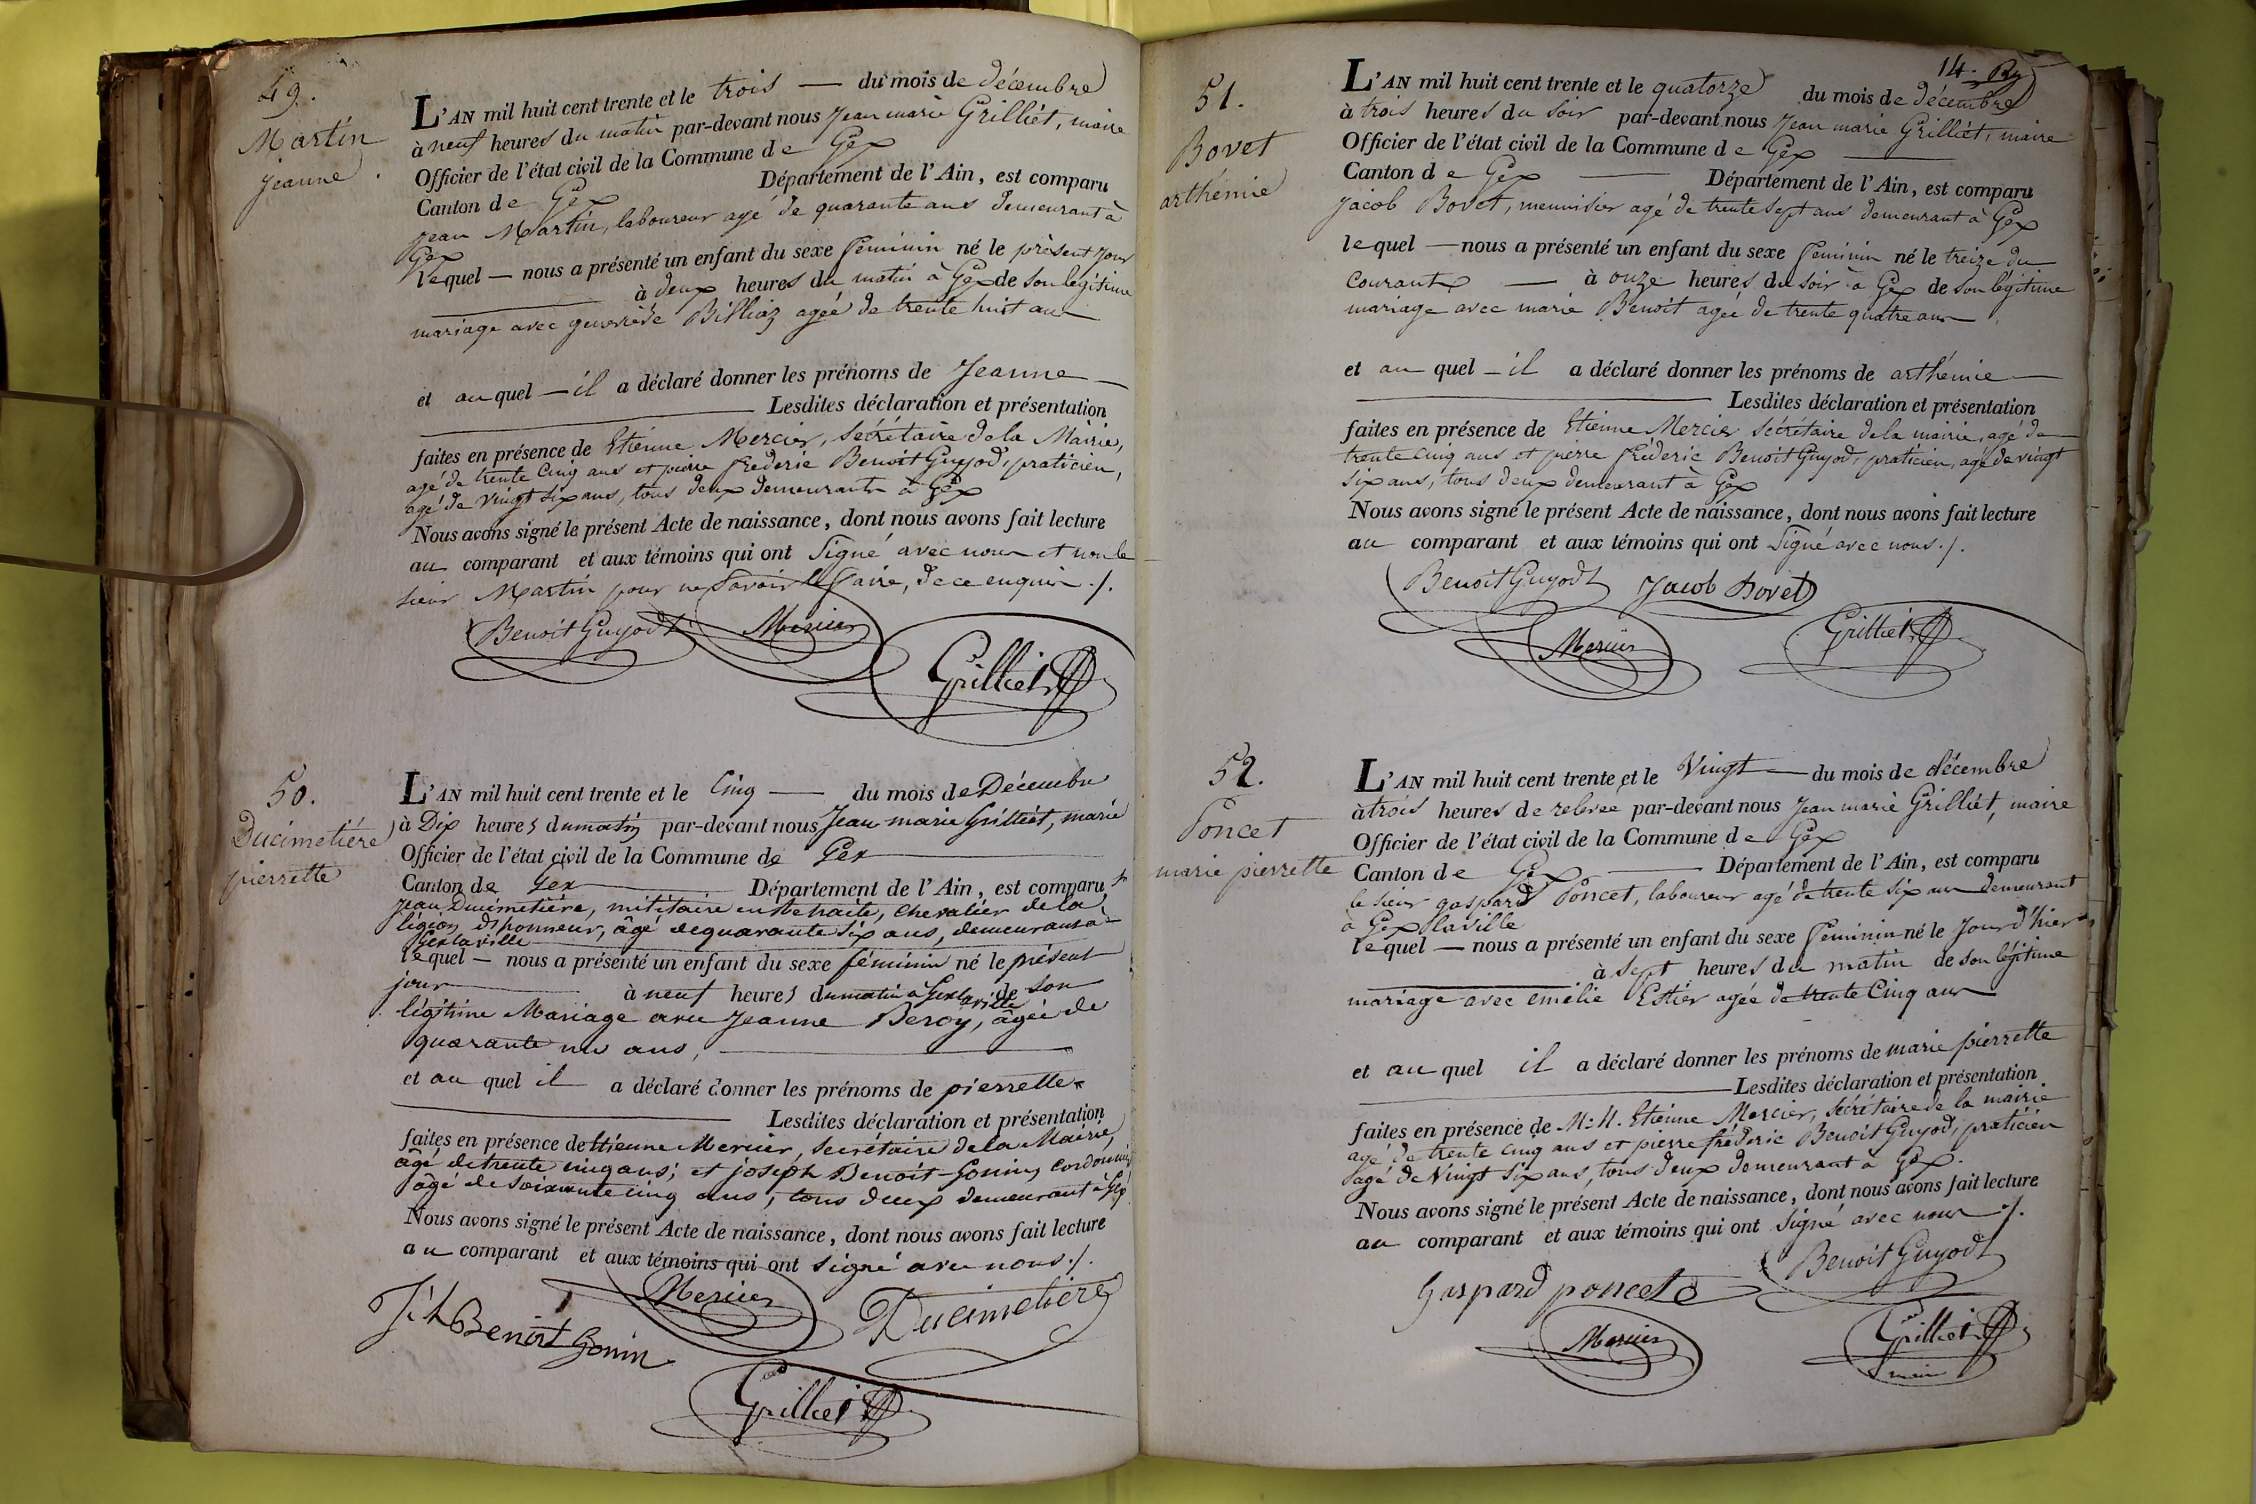 49.
Martin
jeanne
L'AN mil huit cent trente et le trois — du mois de décembre
à neuf heures du matin par-devant nous Jean marie Grilliet, maire
Officier de l'état civil de la Commune de Gex
Canton de Gex Département de l'Ain, est comparu
jean Martin, laboureur agé de quarante ans demeurant à
Gex
lequel — nous a présenté un enfant du sexe feminin né le présent jour
à deux heures du matin à Gex de son légitime
mariage avec Billiaz agée de trente huit ans
et au quel — il a déclaré donner les prénoms de Jeanne
Lesdites déclaration et présentation
faites en présence de Etienne Mercier, secrétaire de la Mairie,
agé de trente cinq ans et pierre frederic Benoit Guyod, praticien,
agé de vingt six ans, tous deux demeurant à Gex
Nous avons signé le présent Acte de naissance, dont nous avons fait lecture
au comparant et aux témoins qui ont signé avec nous et non le
sieur Martin pour ne savoir le faire, de ce enquis ./.
Benoit Guyodt Mercier
Grilliet
50.
Ducimetiére
pierrette
L'AN mil huit cent trente et le Cinq — du mois de Décembre
à Dix heures du matin par-devant nous Jean marie Grilliet, marie
Officier de l'état civil de la Commune de Gex
Canton de Gex Département de l'Ain, est comparu
Jean Ducimetiére, militaire en Retraite, chevalier de la
légion d'honneur, âgé de quarante six ans, demeurant à
Gex la ville
lequel — nous a présenté un enfant du sexe féminin né le présent
jour à neuf heures du matin à Gex la ville de son
légitime Mariage avec Jeanne Beroy, âgée de
quarante un ans,
et au quel il a déclaré donner les prénoms de pierrette
Lesdites déclaration et présentation
faites en présence de Etienne Mercier, secrétaire de la Mairie,
âgé de trente cinq ans; et joseph Benoit-Gonin, cordonnier
âgé de soixante cinq ans, tous deux demeurant à Gex
Nous avons signé le présent Acte de naissance, dont nous avons fait lecture
au comparant et aux témoins qui ont signé avec nous ./.
Mercier Ducimetiére
Benoit Gonin
Grilliet
14.
51.
Bovet
arthémie
L'AN mil huit cent trente et le quatorze du mois de décembre
à trois heures du soir par-devant nous Jean marie Grilliet, maire
Officier de l'état civil de la Commune de Gex
Canton de Gex Département de l'Ain, est comparu
jacob Bovet, menuisier agé de trente sept ans demeurant à Gex
lequel — nous a présenté un enfant du sexe feminin né le treize du
courant — à onze heures du soir à Gex de son légitime
mariage avec marie Benoit agée de trente quatre ans
et au quel — il a déclaré donner les prénoms de arthémie
Lesdites déclaration et présentation
faites en présence de Etienne Mercier secrétaire de la mairie, agé de
trente cinq ans et pierre fréderic Benoit Guyod, praticien, agé de vingt
six ans, tous deux demeurant à Gex
Nous avons signé le présent Acte de naissance, dont nous avons fait lecture
au comparant et aux témoins qui ont signé avec nous ./.
Benoit Guyodt Jacob Bovet
Mercier Grilliet
52.
Poncet
marie pierrette
L'AN mil huit cent trente et le Vingt — du mois de décembre
à trois heures de relevee par-devant nous Jean marie Grilliet, maire
Officier de l'état civil de la Commune de Gex
Canton de Gex Département de l'Ain, est comparu
le sieur gaspard Poncet, laboureur agé de trente six ans demeurant
à Gex la ville
lequel — nous a présenté un enfant du sexe feminin né le jour d'hier
à sept heures du matin de son légitime
mariage avec emélie Estier agée de trente cinq ans
et au quel il a déclaré donner les prénoms de marie pierrette
Lesdites déclaration et présentation
faites en présence de M.M. Etienne Mercier, secrétaire de la mairie
agé de trente cinq ans et pierre fréderic Benoit Guyod, praticien
agé de Vingt six ans, tous deux demeurant à Gex.
Nous avons signé le présent Acte de naissance, dont nous avons fait lecture
au comparant et aux témoins qui ont signé avec nous ./.
Benoit Guyodt
Gaspard poncet
Mercier Grilliet
maire